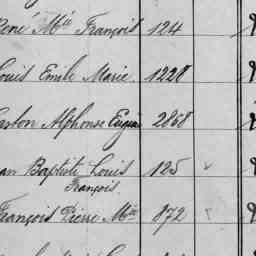 René Mie François 124
Louis Emile Marie 1228
Gaston Alphonse Eugène 2868
Jean Baptiste Louis 125
François.
François Pierre Mie 872